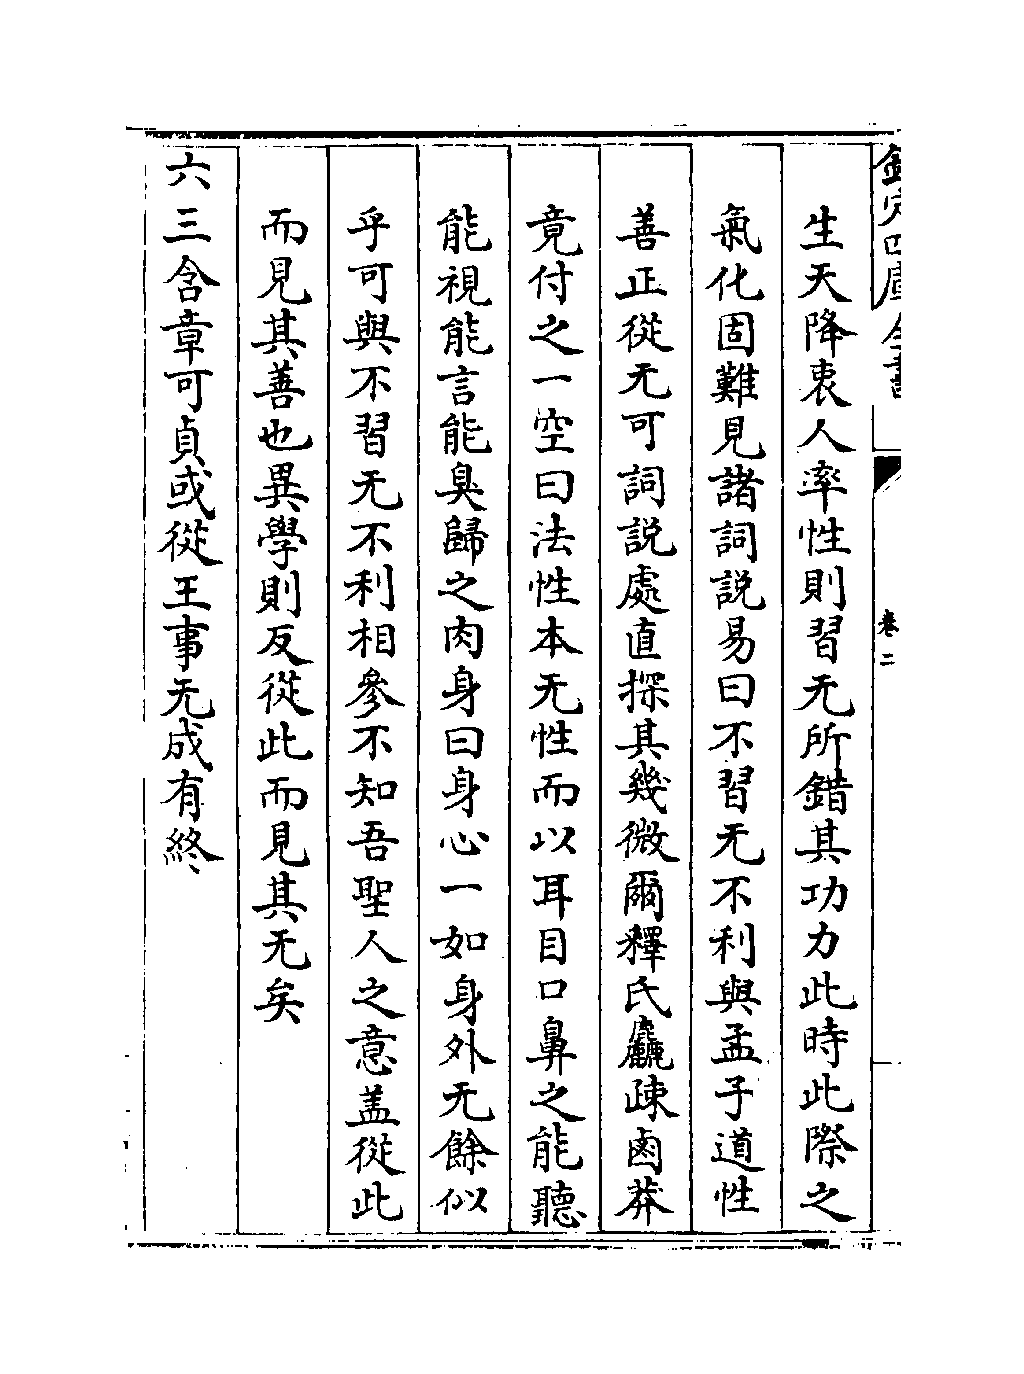 欽定四庫全書
卷二
生天降衷人率性則習无所錯其功力此時此際之
氣化固難見諸詞説易曰不習无不利與孟子道性
善正從无可詞説處直探其幾微爾釋氏麤疎鹵莽
竟付之一空曰法性本无性而以耳目口鼻之能聽
能視能言能臭歸之肉身曰身心一如身外无餘似
乎可與不習无不利相參不知吾聖人之意盖從此
而見其善也異學則反從此而見其无矣
六三含章可貞或從王事无成有終